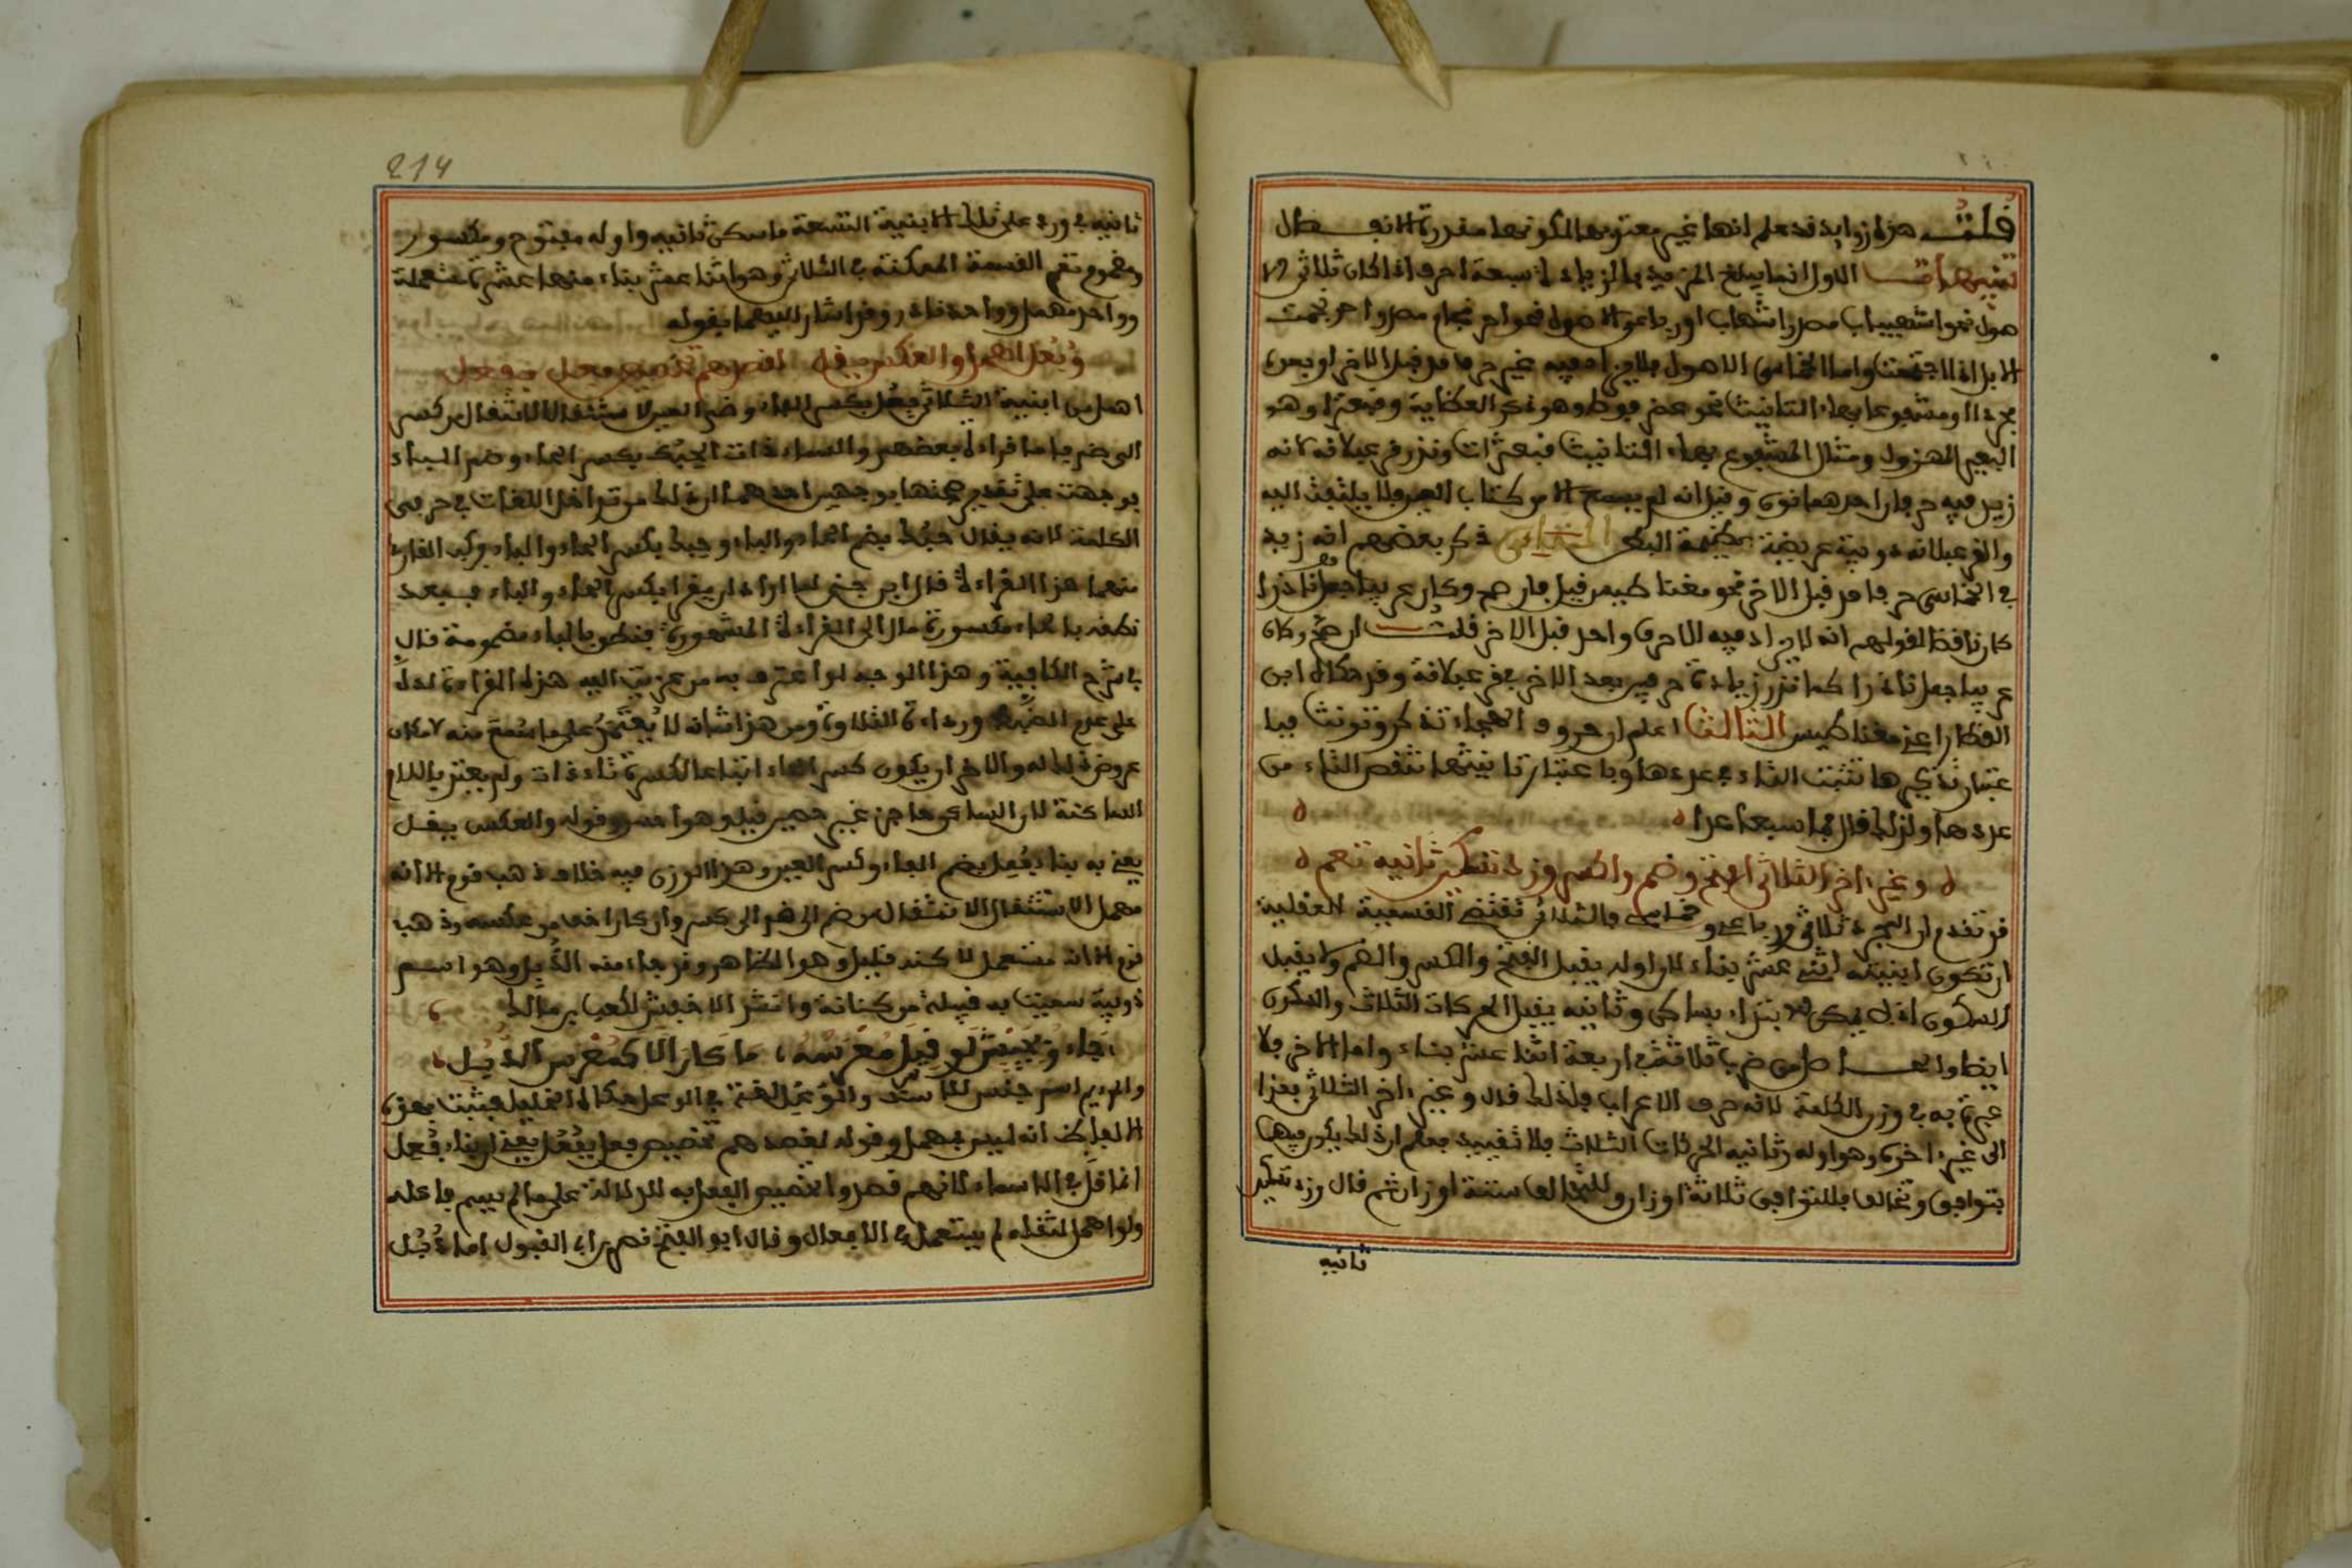 قلت هذه زوايد قد علم انها غير معتد بها لكونها مقدرة الانفصال
تنبيهات الاول انما يبلغ المزيد بالزيادة سبعة احرف اذا كان ثلاثي الا
صول نحو اشهيباب مصدر اشهاب او رباعي الاصول نحو احرنجام مصدر احرنجمت
الابل اذا اجتمعت واما الخماسي الاصول فلا يزاد فيه غير حرف مد قبل الاخر او بعده
مجردا او مشفوعا بهاء التانيث نحو عضرفوط وهو ذكر العظاية وقبعثرا وهو
البعير المهزول ومثال المشفوع بهاء التانيث قبعثرات وندر قرعبلانه لانه
زيد فيه حرفان احدهما نون وقيل انه لم يسمع الا من كتاب العين فلا يلتفت اليه
والقرعبلانه دويبة عريضة عظيمة البطن الثاني ذكر بعضهم انه زيد
في الخماسي حرفا مد قبل الاخر نحو مغناطيس قيل فان صح وكان عربيا جعل نادرا
كان ناقضا لقولهم انه لا يزاد فيه الا حرف واحد قبل الاخر قلت ان صح وكان
عربيا جعل نادرا كما ندر زيادة حرفين بعد الاخر في قرعبلانة وقد حكاه ابن
القطاع اعني مغناطيس الثالث اعلم ان حروف الهجاء تذكر وتونث فبا
عتبار تذكيرها تثبت التاء في عددها وباعتبار تانيثها تنقص التاء من
عددها ولذلك قال فما سبعا عدا
وغير اخر الثلاثي افتح وضم واكسر وزد تسكين ثانيه تعم
قد تقدم ان المجرد ثلاثي ورباعي وخماسي فالثلاثي تقتضي القسمة العقلية
ان تكون ابنيته اثني عشر بناء لان اوله يقبل الفتح والكسر والضم ولا يقبل
السكون اذ لا يمكن الابتداء بساكن وثانيه يقبل الحركات الثلاث والسكون
ايضا والحاصل من ضرب ثلاثة في اربعة اثنا عشر بناء واما الاخر فلا
عبرة به في وزن الكلمة لانه حرف الاعراب فلذلك قال وغير اخر الثلاثي بعزا
الى غير اخره وهو اوله وثانيه الحركات الثلاث بلا تقييد فعلم ان ذلك يكون فيها
بتوافق وتخالف فللتوافق ثلاثة اوزان وللتخالف ستة اوزان ثم قال وزد تسكين
ثانيه
214
ثانيه في ورد على تلك الابنية التسعة ما سكن ثانيه واوله مفتوح ومكسور
ومضموم تعم القسمة الممكنة في الثلاثي وهو اثنا عشر بناء منها عشرة مستعملة
وواحد مهمل وواحد نادر وقد اشار اليهما بقوله
وفعل اهمل والعكس يقل لقصدهم تخصيص فعل بفعل
اهمل من ابنية الثلاثي فعل بكسر الفاء وضم العين لاستثقال الانتقال من كسر
الى ضم واما قراءة بعضهم والسماء ذات الحبك بكسر الحاء وضم الباء
فوجهت على تقدير صحتها بوجهين احدهما ان ذلك من تداخل اللغات في حرفي
الكلمة لانه يقال حبك بضم الحاء والباء وحبك بكسر الحاء والباء فركب القارئ
منهما هذا القراءة قال ابن جني لما اراد ان يقرا بكسر الحاء والباء فبعد
نطقه بالحاء مكسورة مال الى القراءة المشهورة فنطق بالباء مضمومة قال
في شرح الكافية وهذا الوجه لو اعترف به من عزيت اليه هذه القراءة لدل
على عدم الضبط ورداءة التلاوة ومن هذا شانه لا يعتمد على ما سمع منه لامكان
عروض ذلك له والاخر ان يكون كسر الحاء اتباعا لكسرة تاء ذات ولم يعتبر باللام
الساكنة لان الساكن حاجز غير حصين قيل وهو احسن وقوله والعكس يقل
يعني به بناء فعل بضم الفاء وكسر العين وهذا الوزن فيه خلاف ذهب قوم الى انه
مهمل لاستثقال الانتقال من ضم الى كسر وان كان اخف من عكسه وذهب
قوم الى انه مستعمل لكنه قليل وهو الظاهر وقد جاء منه الدئل وهو اسم
دويبة سميت به قبيلة من كنانة وانشد الاخفش لكعب بن مالك
جاءو بجيش لو قيس معرسه ما كان الا كمعرس الدئل
والرئم اسم جنس للاست والوعل لغة في الوعل حكاه الخليل فثبت بهذه
الالفاظ انه ليس بمهمل وقوله لقصدهم تخصيص فعل بفعل يعني ان بناء فعل
انما قل في الاسماء لانهم قصدوا تخصيص الفعل به للدلالة على ما لم يسم فاعله
ولو اهمل لثقله لم يستعمل في الافعال وقال ابو الفتح نصر اء القبول اما دئل